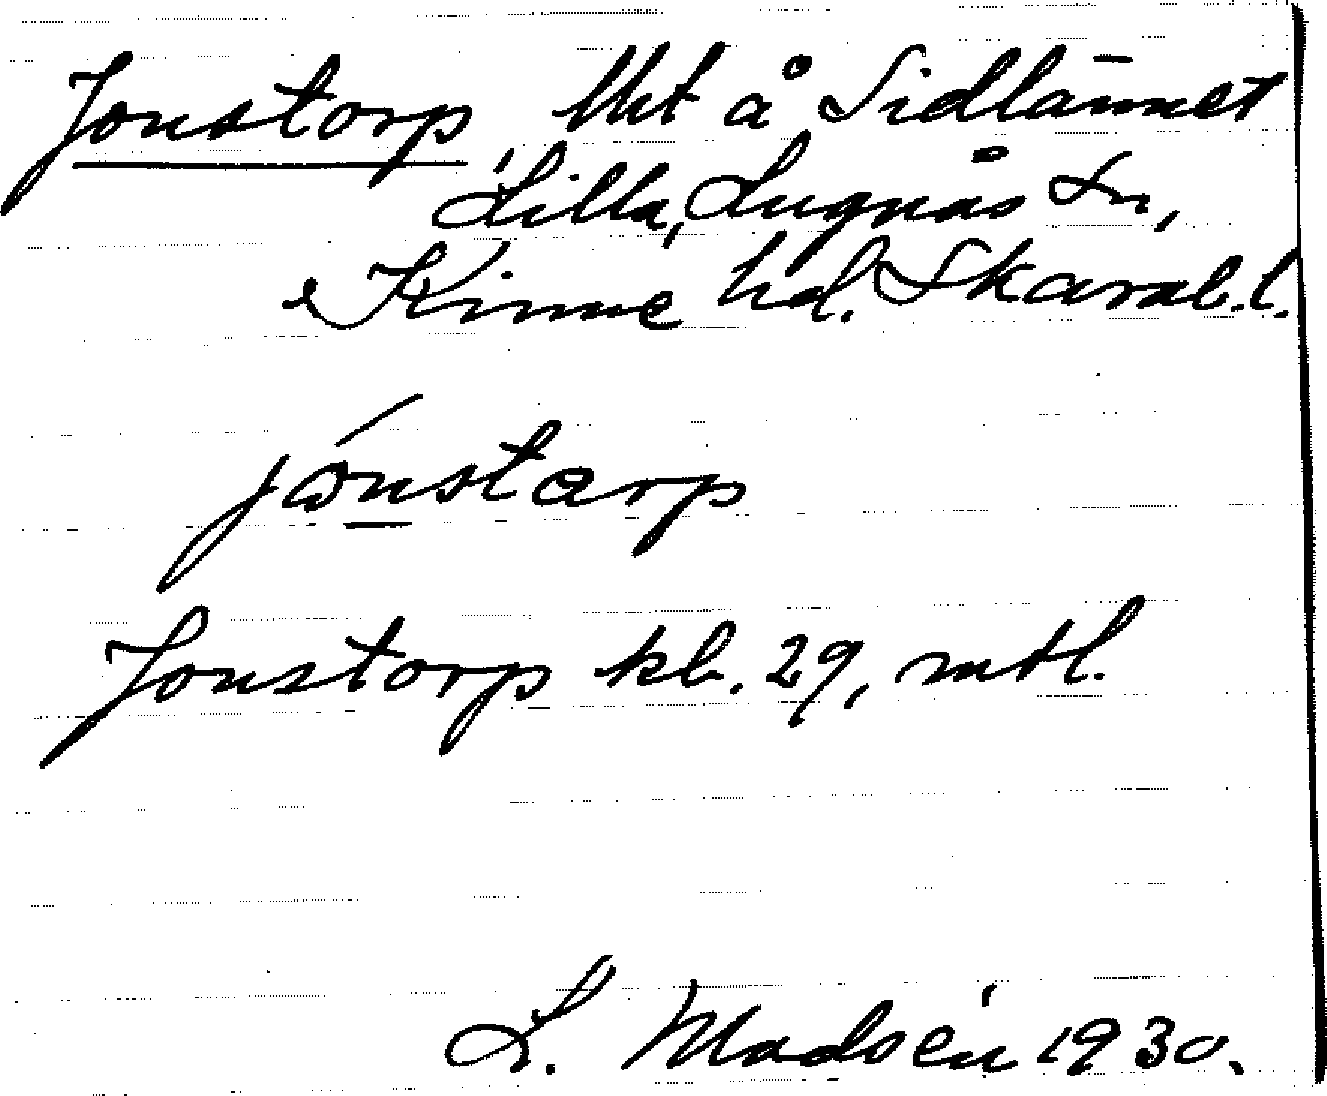 Jonstorp Uht å Sidlännet
Lilla, Lugnås Sn,
Kinne hd. Skarab.l.
jónstarp
Jonstorp kb. 29, mtl.
L. Madsén 1930.